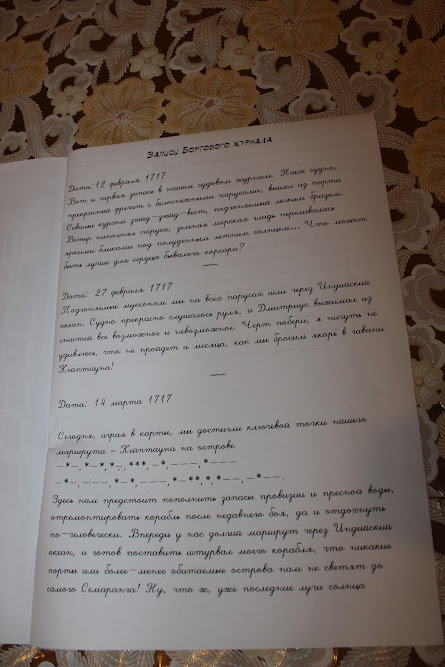 Записи Бортового журнала
Дата: 12 февраля 1717
Вот и первая запись в нашем судовом журнале. Наше судно,
прекрасный фрегат с белоснежными парусами, вышел из порта
Севильи курсом зюйд-зюйд-вест, подгоняемый легким бризом.
Ветер наполняет паруса, зеленая морская гладь переливалась
яркими бликами под полуденным летним солнцем... Что может
быть лучше для сердца бывалого корсара?
~~
Дата: 27 февраля 1717
Подгоняемые муссоном мы на всех парусах шли через Индийский
океан. Судно прекрасно слушалось руля, и Дмитриус выжимал из
снастей все возможное и невозможное. Черт побери, я ничуть не
удивлюсь, что не пройдет и месяца, как мы бросим якорь в гавани
Кэптауна!
~~
Дата: 14 марта 1717
Сегодня, играя в карты, мы достигли ключевой точки нашего
маршрута - Кэптауна на острове
-*-, *-*, *-, ***, -*, ---, *---
-*-, ---, *-*, ---, *-**, *, *--, -*--.
Здесь нам предстоит пополнить запасы провизии и пресной воды,
отремонтировать корабль после недавнего боя, да и отдохнуть
по-человечески. Впереди у нас долгий маршрут через Индийский
океан, и готов поставить штурвал моего корабля, что никакие
порты или более-менее обитаемые острова нам не светят до
самого Семаранга! Ну, что ж, уже последние лучи солнца